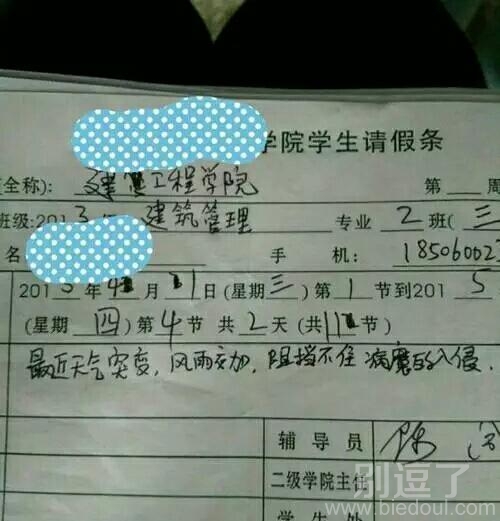 学院学生请假条
全称): 建筑工程学院 第 周
班级:2013 建筑管理 专业 2 班(三
名 手 机: 18506002
2015年4月 1日(星期三)第1节到2015
(星期四)第4节 共2天(共11节)
最近天气突变,风雨交加,阻挡不住病魔的入侵.
辅 导 员 陈
二级学院主任
学 生 处
别逗了
www.biedoul.com